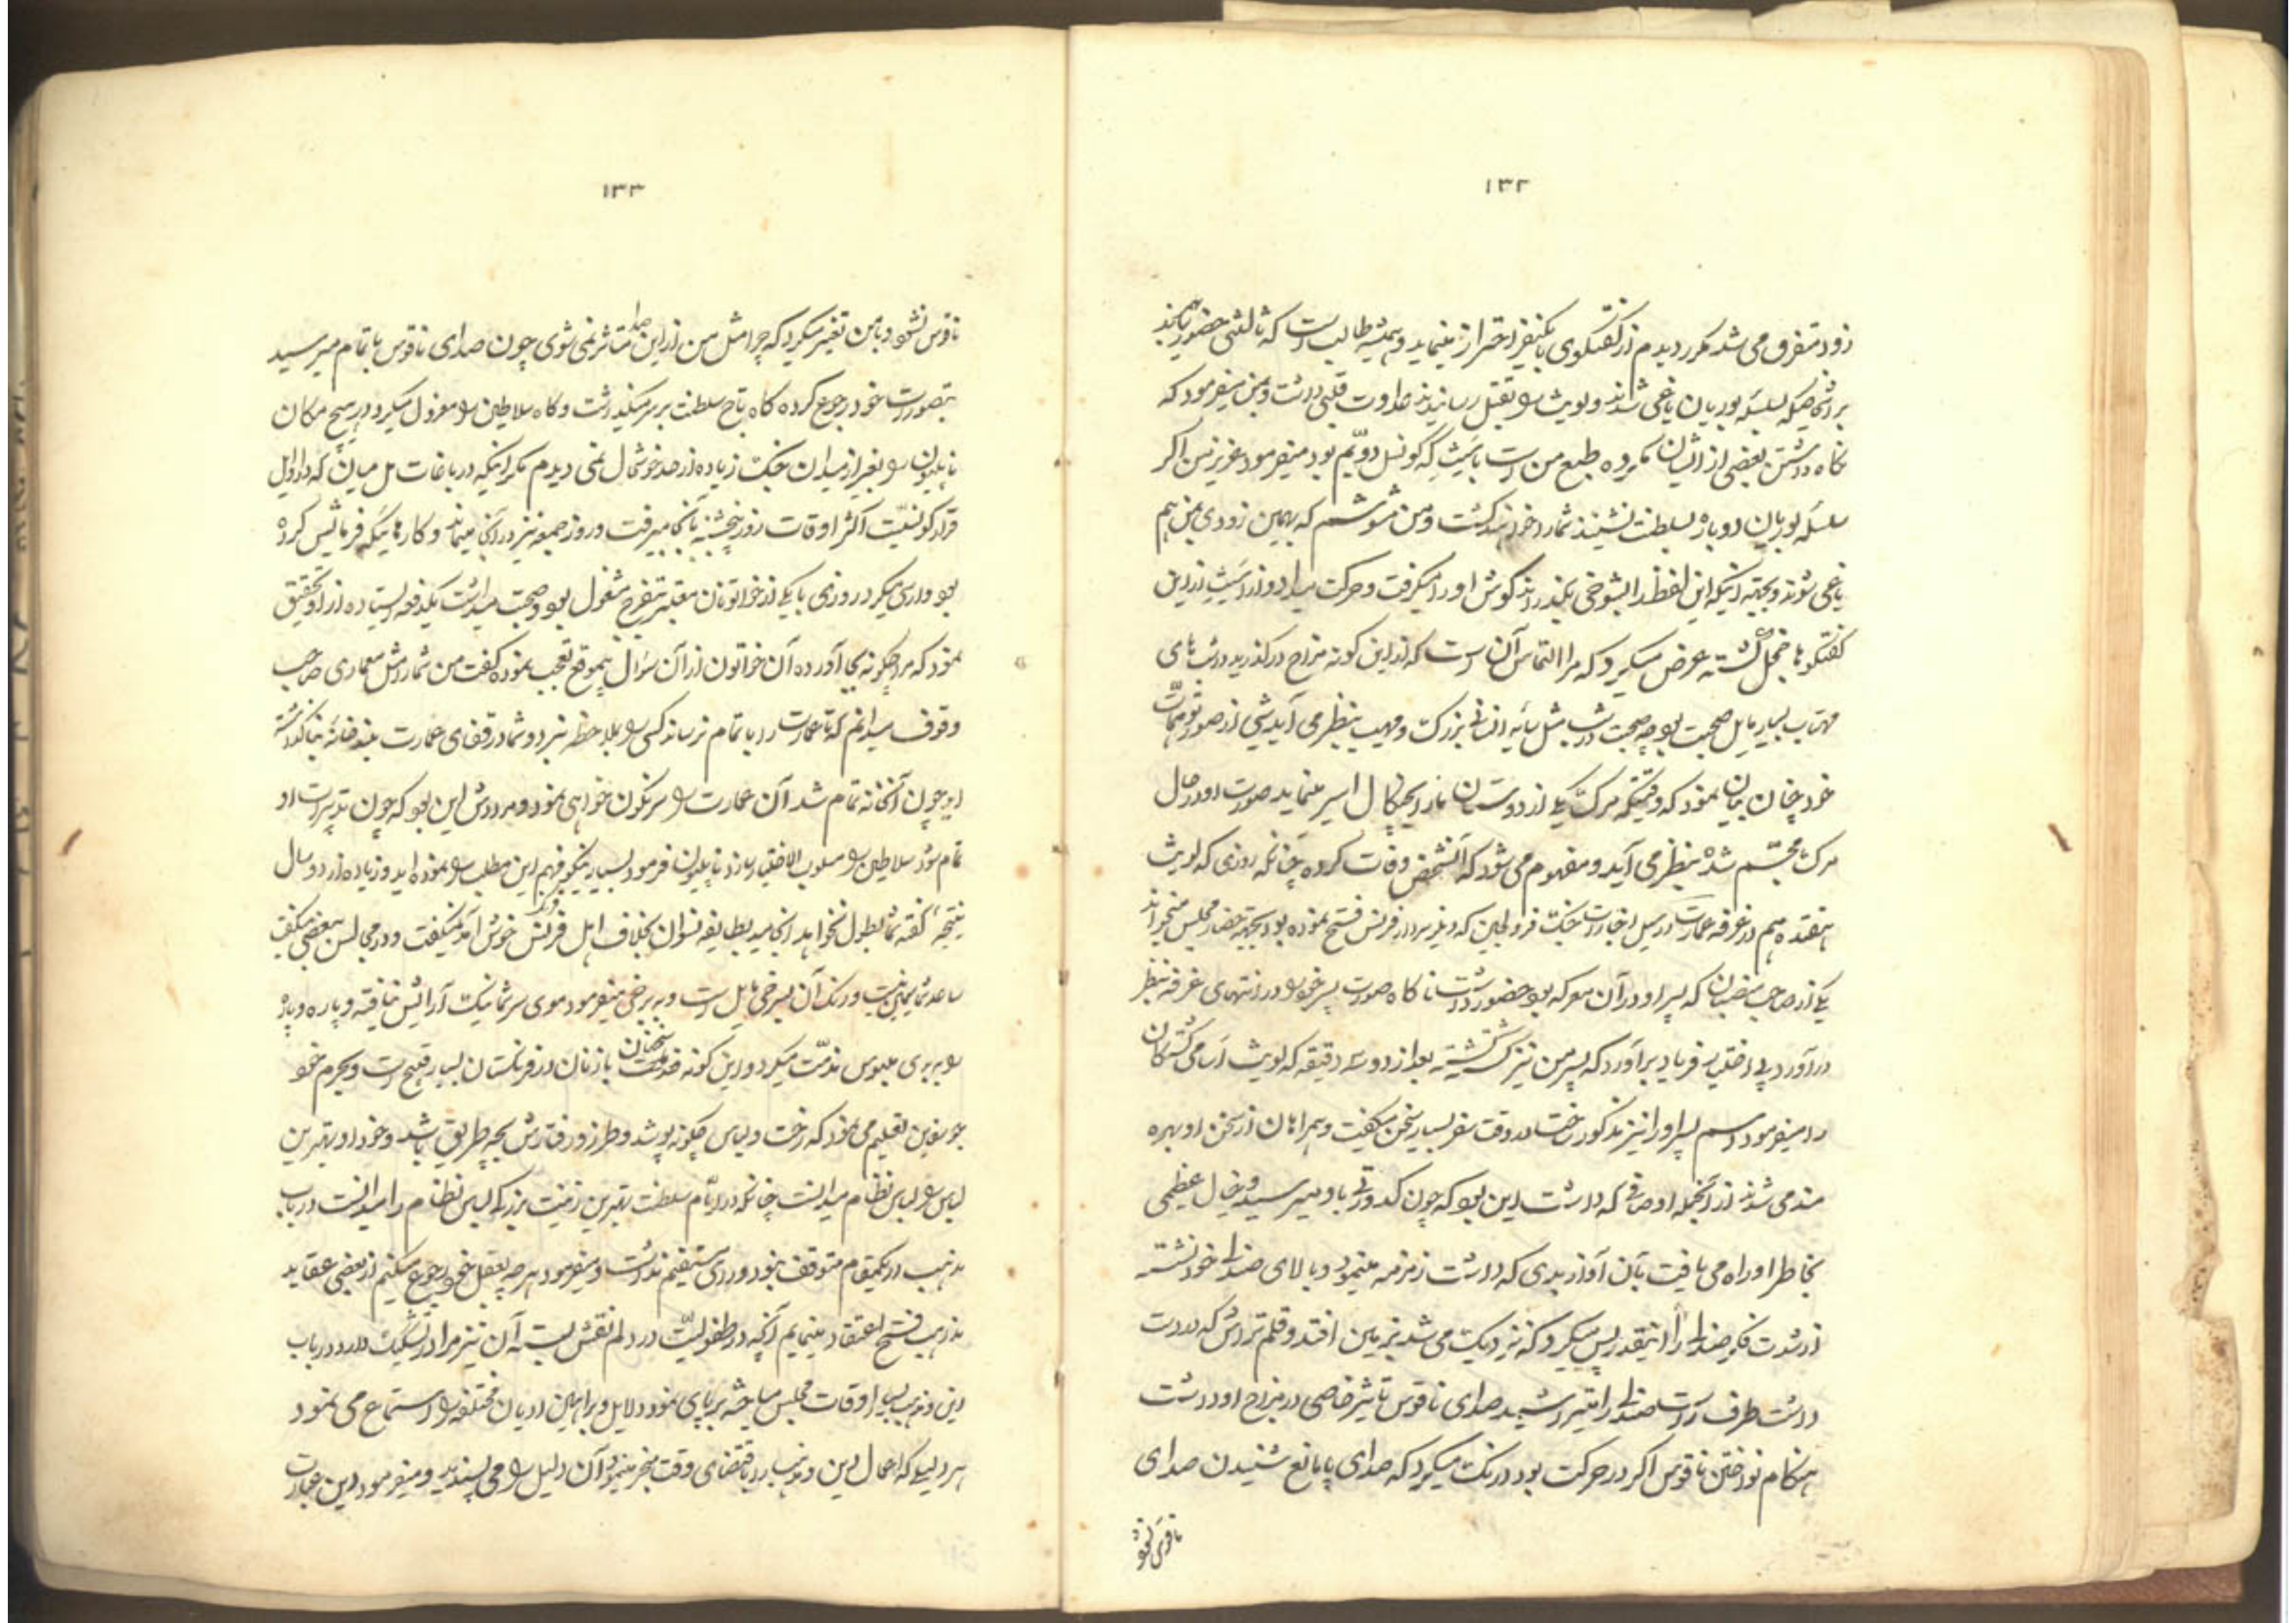 ۱۳۲
زود متفرق می شد مکرر دیدم از گفتگوی با یکنفر احتراز مینماید و همیشه طالب است که ثالثی حضور بهم
بر اشخاصیکه بسلسله بوربان یاغی شدند و لویث را بقتل رسانیدند عداوت قلبی داشت و بمن میفرمود که
نگاه داشتن بعضی از ایشان مکروه طبع من است با کونسل دویم بود میفرمود عزیز من اگر
سلسله بوربان دوباره بسلطنت نشینند شما را خواهند کشت و من مشوشم که بهمین زودی بمن هم
یاغی شوند و بجهة اینکه این لفظ را بشوخی بگذراند گوش او را میگرفت و حرکت میداد و از این
گفتگوها خجل گشته عرض میکرد که مرا التماس آن است که از این گونه مزاح درگذرید در شب های
مهتاب بسیار مایل صحبت بود چه صحبت در شب مثل سایه انسانی بزرگ و مهیب بنظر می آید شبی از صور توهمات
خود چنان بیان نمود که وقتیکه مرگ یکی از دوستان ما را بچنگال اسیر مینماید صورت او در حال
مرگ مجسم شده بنظر می آید و مفهوم می شود که آنشخص وفات کرده چنانکه روزی که لویث
هفدهم در غرفه عمارت اخبارات جنگ که وزیر در فرنس فتح نموده بود بجهة حضار مجلس میخواند
یکی از صاحب منصبان که پسر او در آن معرکه بود حضور داشت ناگاه صورت پسر خود را در انتهای غرفه بنظر
در آورد بی اختیار فریاد برآورد که پسر من نیز کشته گشته بعد از دو سه دقیقه که لویث اسامی کشتگان
را میفرمود اسم پسر او را نیز مذکور ساخت در وقت سفر بسیار سخن میگفت و همراهان از سخن او بهره
مند می شدند از آنجمله اوصافی که داشت این بود که چون کدورتی باو میرسید و خیال عظیمی
بخاطر او راه می یافت بآن آواز بدی که داشت زمزمه مینمود و بالای صندلی خود نشسته
از شدت فکر صندلی را اینقدر پس میکرد که نزدیک می شد بزمین افتد و قلم تراش که در دست
داشت طرف راست صندلی را میتراشید صدای ناقوس تاثیر خاصی در مزاج او داشت
هنگام نواختن ناقوس اگر در حرکت بود درنگ میکرد که صدای پا مانع شنیدن صدای
ناقوس نشود
۱۳۳
ناقوس نشود و با من تغیر میکرد که چرا مثل من از این صدا متاثر نمی شوی چون صدای ناقوس باتمام میرسید
بتصورات خود رجوع کرده گاه تاج سلطنت بر سر میگذاشت و گاه سلاطین را معزول میکرد در هیچ مکان
ناپلیون را بغیر از میدان جنگ زیاده از حد خوشحال نمی دیدم مگر اینکه در باغات مل میان که در اوایل
قرار کونسلیت اکثر اوقات روز پنجشنبه بآنجا میرفت و روز جمعه نیز در آنجا میماند و کارهائیکه فرمایش کرده
بود وارسی میکرد روزی با یکی از خواتونان معتبر بتفرج مشغول بود و صحبت میداشت یکدفعه ایستاده از او تحقیق
نمود که مرا چگونه بجا آورده آن خواتون از آن سؤال بیموقع تعجب نموده گفت من شما را مثل معماری صاحب
وقوف میدانم که تا عمارت را باتمام نرساند کسی را بملاحظه نبرد و شما در قفای عمارت بلند خانه بنا گذاشته
اید چون آنخانه تمام شد آن عمارت را سرنگون خواهی نمود و مرادش این بود که چون تدبیرات او
تمام شود سلاطین را مسلوب الاختیار سازد ناپلیون فرمود بسیار نیکو فهم این مطلب را نموده اید و زیاده از دو سال
نتیجه گفته شما بطول نخواهد انجامید بطایفه نسوان بخلاف اهل فرنس خوش آمد نمیگفت و در مجالس ببعضی میگفت
ساعد شما و رنگ آن بسرخی مایل است و به برخی میفرمود موی سر شما نیک آرایش نیافته و پاره و پاره
را به بدی ملبوس مذمت میکرد و این گونه سخنان با زنان در فرنگستان بسیار قبیح است و بحرم خود
جوسفین تعلیم می نمود که رخت و لباس چگونه پوشد و طرز و رفتارش بچه طریق باشد و خود او بهترین
لباس را لباس نظام میدانست چنانکه در ایام سلطنت بهترین زینت بزرگ لباس نظام را میدانست در باب
مذهب در یکمقام متوقف نبود و رای مستقیم نداشت و میفرمود هر چه بعقل خود رجوع میکنم از بعضی عقاید
مذهب فسخ اعتقاد مینمایم آنچه در طفولیت در دلم نقش بسته آن نیز مرا در تشکیک دارد در باب
دین و مذهب بسیار اوقات مجلس مباحثه برپای نمود دلایل و براهین ادیان مختلفه را استماع می نمود
هر دلیلی که اعمال دین و مذهب را باقتضای وقت منجر مینمود آن دلیل را می پسندید و میفرمود این عبارت